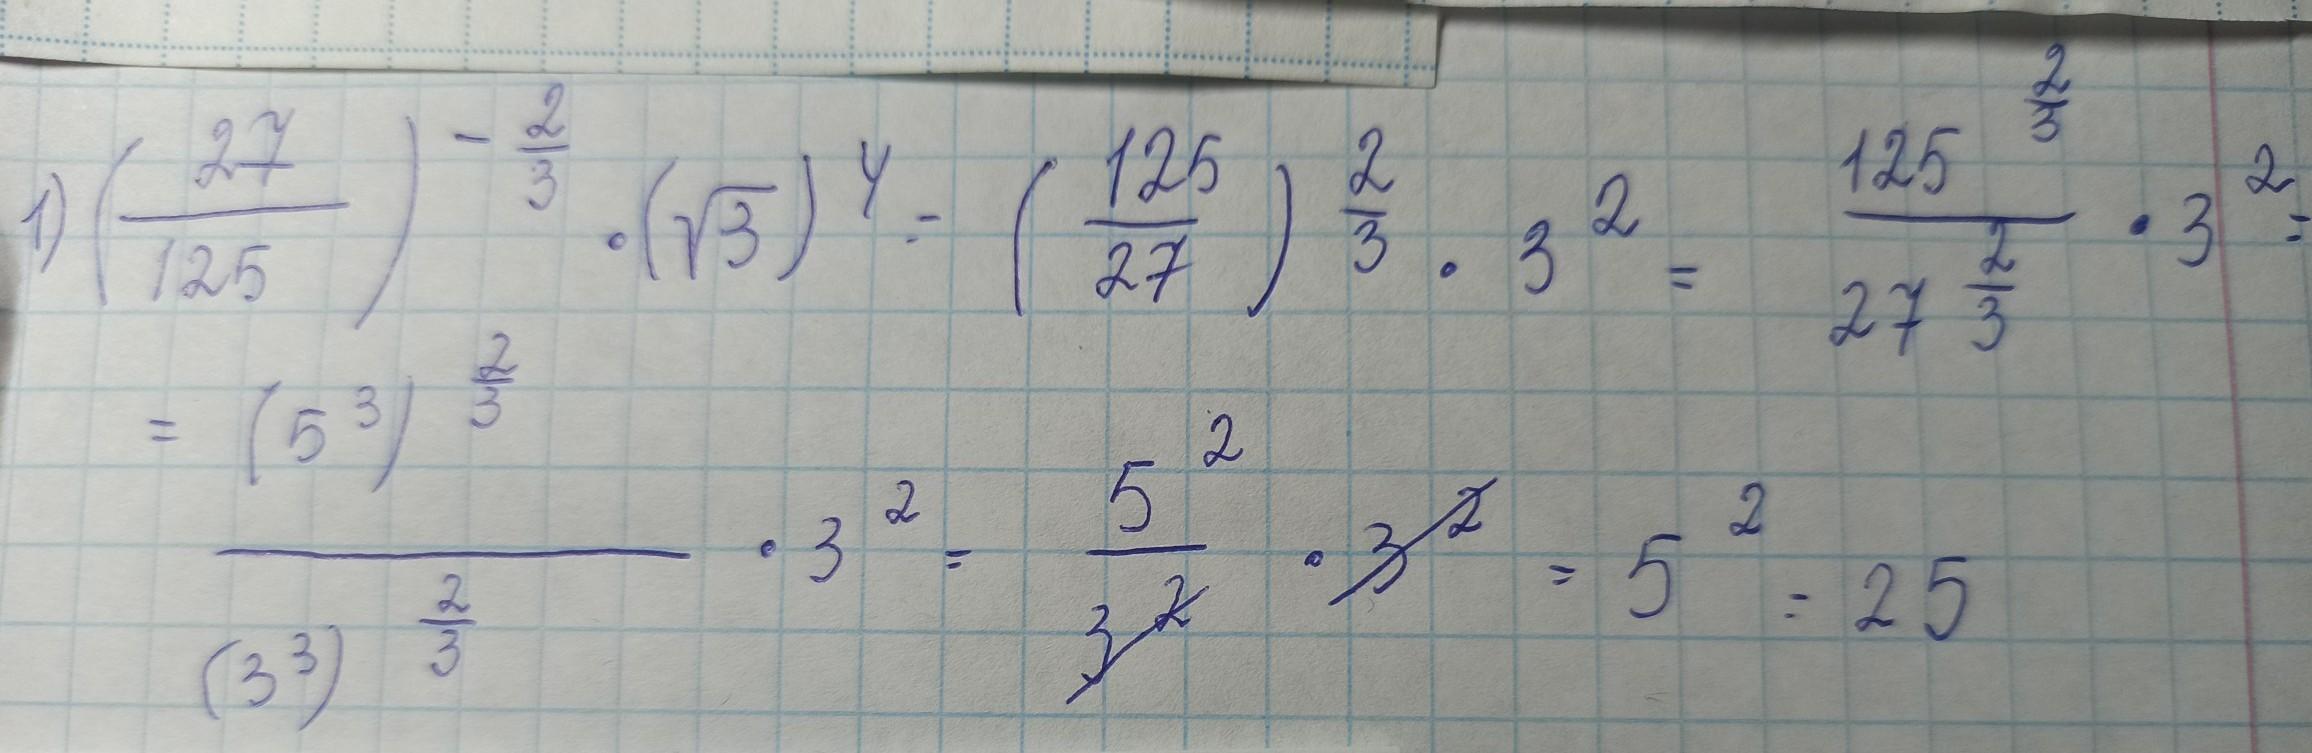 1) (27/125)^(-2/3) · (√3)^4 = (125/27)^(2/3) · 3^2 = 125^(2/3)/27^(2/3) · 3^2 =
= (5^3)^(2/3)/(3^3)^(2/3) · 3^2 = 5^2/3^2 · 3^2 = 5^2 = 25